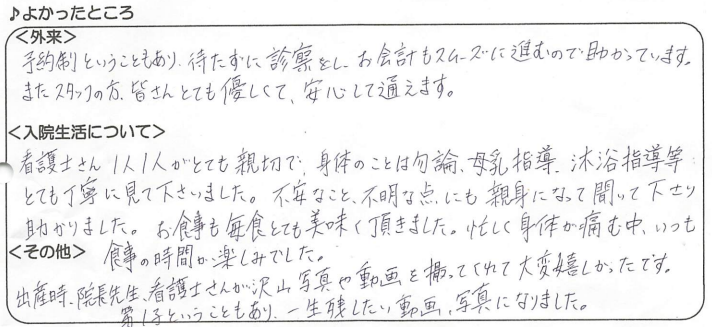 ♪よかったところ
<外来>
予約制ということもあり、待たずに診察をし、お会計もスムーズに進むので助かっています。
またスタッフの方、皆さんとても優しくて、安心して通えます。
<入院生活について>
看護士さん1人1人がとても親切で、身体のことは勿論、母乳指導、沐浴指導等
とても丁寧に見て下さいました。不安なこと、不明な点にも親身になって聞いて下さり
助かりました。お食事も毎食とても美味く頂きました。忙しく身体が痛む中、いつも
食事の時間が楽しみでした。
<その他>
出産時、院長先生、看護士さんが沢山写真や動画を撮ってくれて大変嬉しかったです。
第1子ということもあり、一生残したい動画、写真になりました。